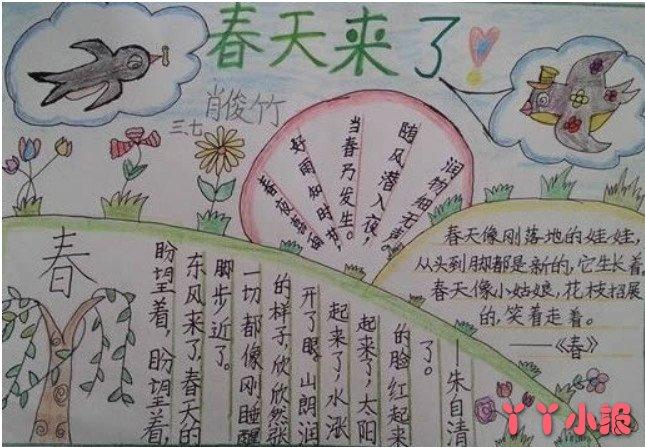 春天来了
肖俊竹
三七
春夜喜雨
好雨知时节，
当春乃发生。
随风潜入夜，
润物细无声。
春
盼望着，盼望着，
东风来了，春天的
脚步近了。
一切都像刚睡醒
的样子，欣欣然张
开了眼。山朗润
起来了，水涨
起来了，太阳
的脸红起来
了。
——朱自清
春天像刚落地的娃娃，
从头到脚都是新的，它生长着。
春天像小姑娘，花枝招展
的，笑着走着。
——《春》
丫丫小报